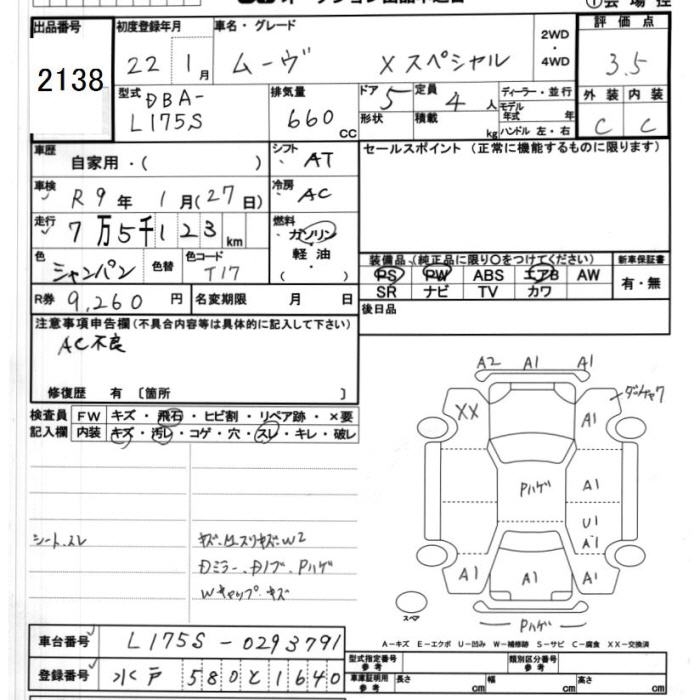 オークション出品申込書
出品番号 2138
初度登録年月 22 1月
車名・グレード ムーヴ Xスペシャル 2WD・4WD
評価点 3.5
型式 DBA-L175S
排気量 660cc
ドア 5 定員 4人
形状 積載 kg
ディーラー・並行
モデル年式 年
ハンドル 左・右
外装 内装
C C
車歴 自家用・( )
シフト AT
セールスポイント(正常に機能するものに限ります)
車検 R9年 1月(27日)
冷房 AC
走行 7万5千123km
燃料 ガソリン・軽油・( )
色 シャンパン 色替 色コード T17
装備品(純正品に限り○をつけてください) 新車保証書
PS PW ABS エアB AW 有・無
SR ナビ TV カワ
R券 9,260円 名変期限 月 日
後日品
注意事項申告欄(不具合内容等は具体的に記入して下さい)
AC不良
修復歴 有〔箇所 〕
検査員記入欄 FW キズ・飛石・ヒビ割・リペア跡・×要
内装 キズ・汚レ・コゲ・穴・スレ・キレ・破レ
シート、スレ
Dミラー、Dノブ、Pハゲ
Wキャップ、キズ
A2 A1 A1
XX A1
Pハゲ A1
U1
A1
A1 A1 A1
スペア Pハゲ
A-キズ E-エクボ U-凹み W-補修跡 S-サビ C-腐食 XX-交換済
車台番号 L175S-0293791
登録番号 水戸 580と1640
型式指定番号 参考 類別区分番号 参考
車庫証明用 参考 長さ cm 幅 cm 高さ cm